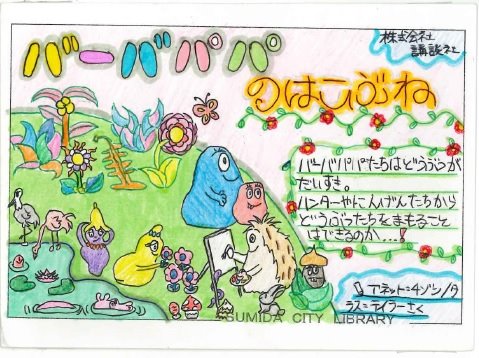 バーバパパ
のはこぶね
株式会社
講談社
バーバパパたちはどうぶつが
だいすき。
ハンターやにんげんたちから
どうぶつたちをまもること
はできるのか…!
アネット=チゾン/タ
ラス=テイラーさく
SUMIDA CITY LIBRARY